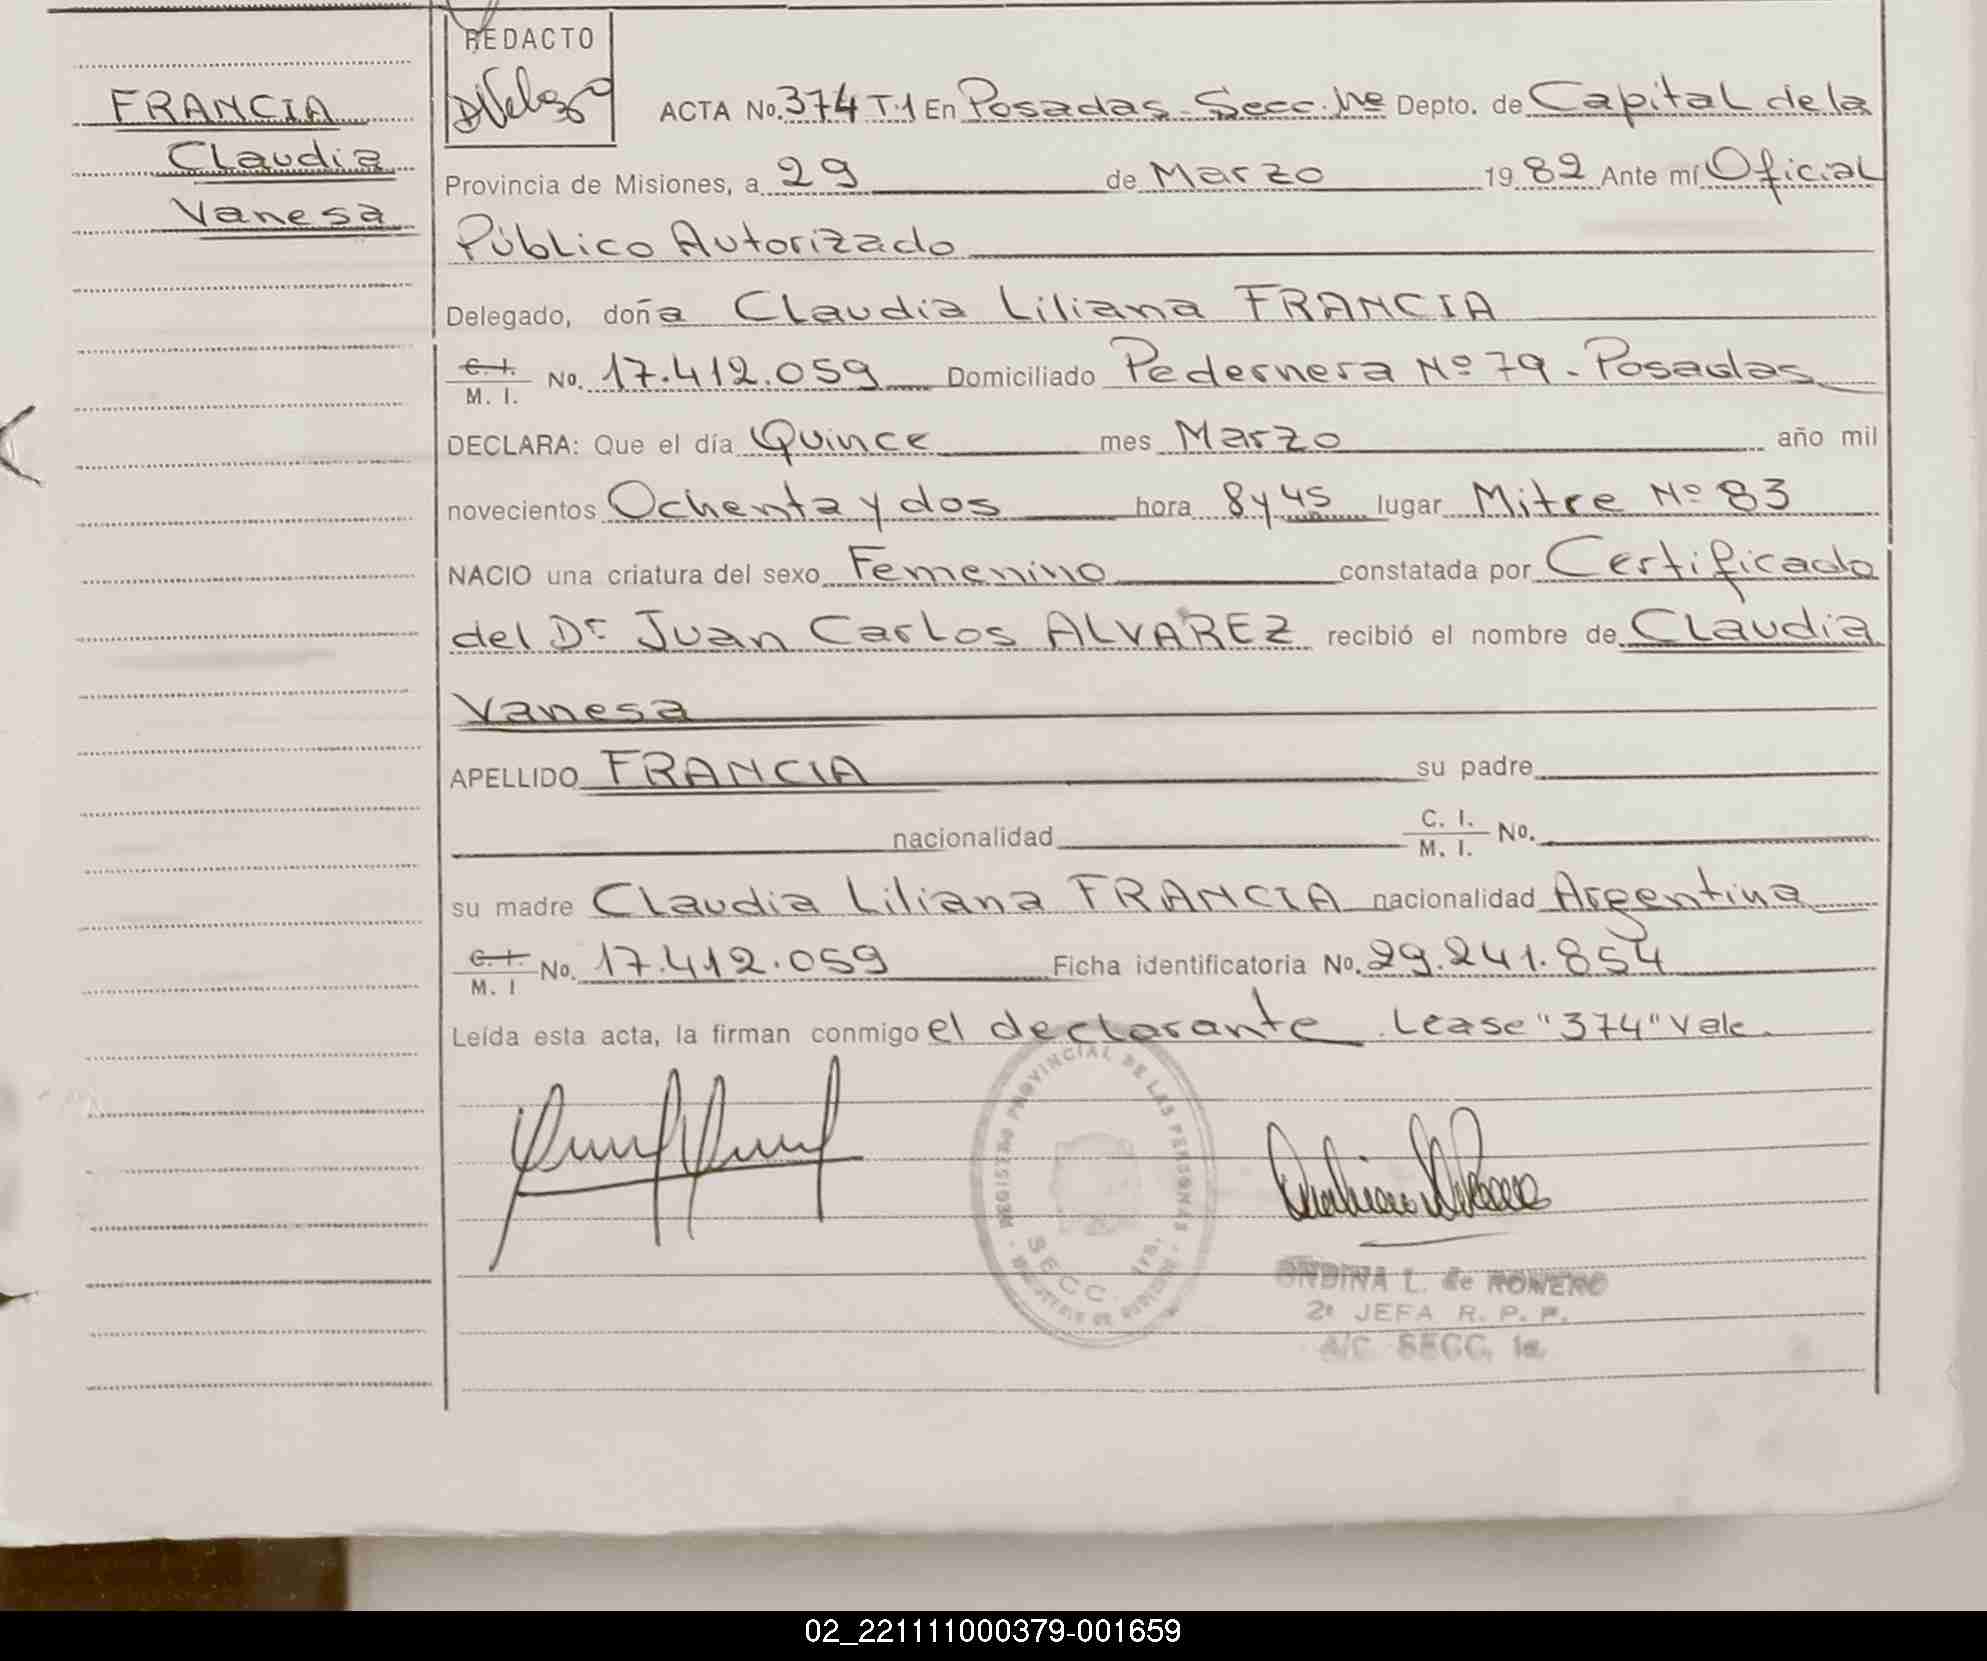 FRANCIA
Claudia
Vanesa
REDACTO
ACTA No. 374 T.1 En Posadas - Secc. 1ra Depto. de Capital de la
Provincia de Misiones, a 29 de Marzo 1982 Ante mí Oficial
Público Autorizado
Delegado, doña Claudia Liliana FRANCIA
C. I.
M. I. No. 17.412.059 Domiciliado Pedernera Nº 79 - Posadas
DECLARA: Que el día Quince mes Marzo año mil
novecientos Ochenta y dos hora 8 y 45 lugar Mitre Nº 83
NACIO una criatura del sexo Femenino constatada por Certificado
del Dr Juan Carlos ALVAREZ recibió el nombre de Claudia
Vanesa
APELLIDO FRANCIA su padre
nacionalidad C. I.
M. I. No.
su madre Claudia Liliana FRANCIA nacionalidad Argentina
C. I.
M. I No. 17.412.059 Ficha identificatoria No. 29.241.854
Leída esta acta, la firman conmigo el declarante. Lease "374" Vale.
REGISTRO PROVINCIAL DE LAS PERSONAS
SECC. 1ra.
ONDINA L. de ROMERO
2ª JEFA R. P. P.
A/C. SECC. 1a.
02_221111000379-001659